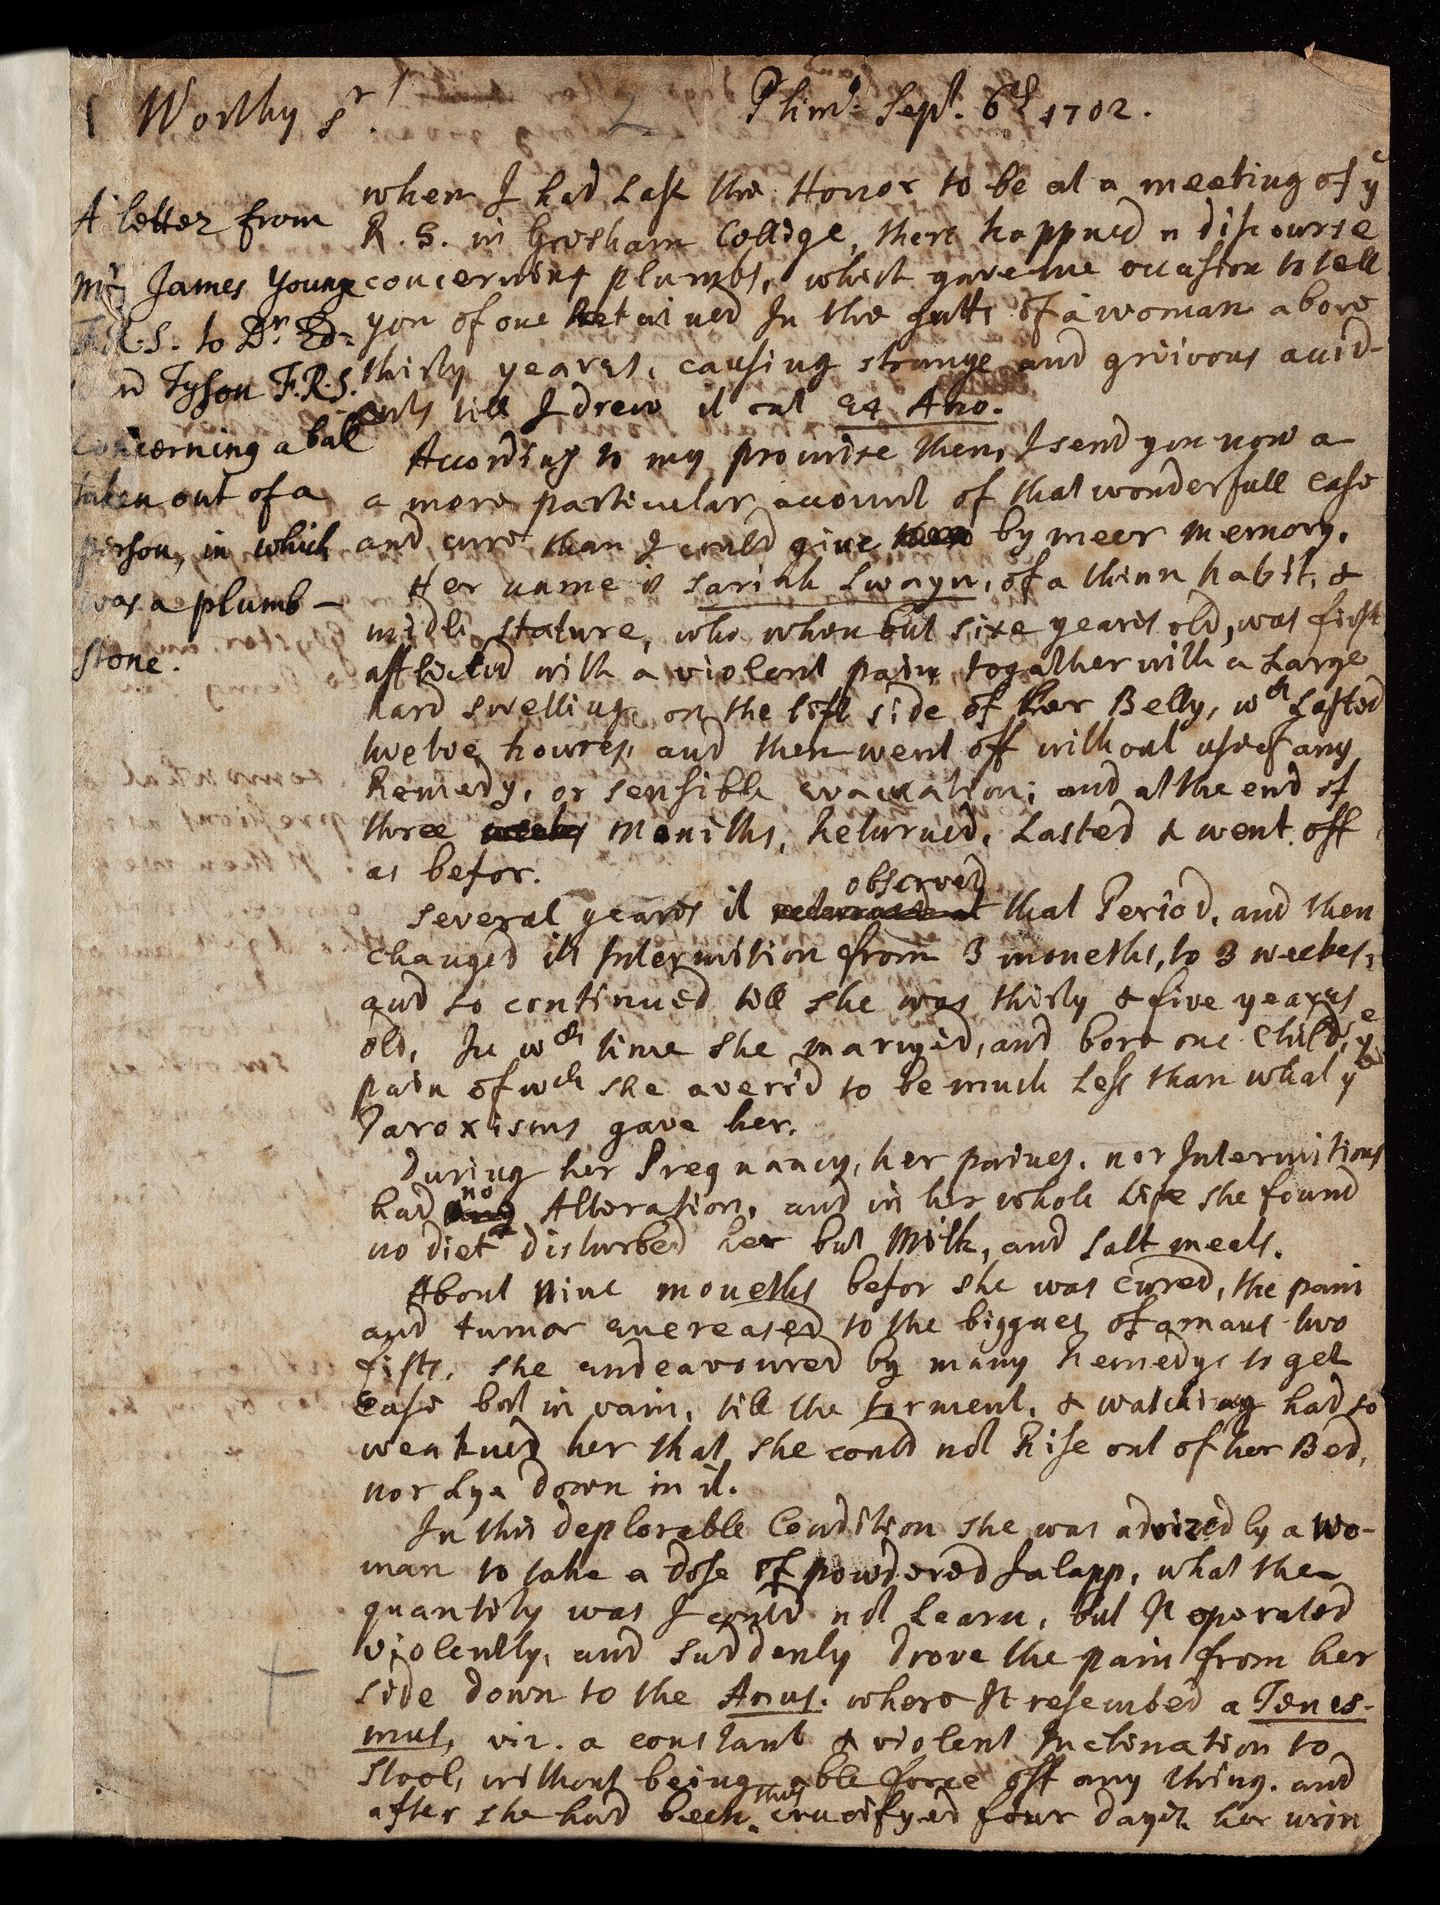 Worthy Sr. 2 Plimo: Sept. 6th 1702.
A letter from
Mr James Young
F.R.S. to Dr. Ed=
rd Tyson F.R.S.
concerning a ball
taken out of a
person, in which
was a plumb-
stone.
when I had Last the Honor to be at a meeting of ye
R. S. in Gresham Colledge, there happned a discourse
concerning plumbs, which gave me occasion to tell
you of one Retained In the gutts of a woman above
thirty yeares, causing strange and griivous accid-
ents till I drew it out ex Ano.
According to my promise then, I send you now a
a more particular account of that wonderfull case
and cure than I could give then by meer memory.
Her name is Sariah Swayn, of a thinn habit, &
midle stature, who when but sixe years old, was first
afflicted with a violent pain togather with a Large
hard swelling, on the left side of her Belly, wch Lasted
twelve howres, and then went off without use of any
Remedy, or sensible evacuation; and at the end of
three weeks moniths, Returned, Lasted & went off
as befor.
Several years it returned at observed that Period, and then
changed its Intermition from 3 moneths, to 3 weekes;
and so continued till she was thirty & five yeares
old, In wch time she maryed, and bore one Child, ye
pain of wch she averid to be much Less than what ye
Paroxisms gave her.
During her Pregnancy, her paines, nor Intermitions
had any no Alteration, and in her whole Life she found
no diet disturbed her but Milk, and salt meats.
About Nine moneths befor she was cured, the pain
and tumor encreased to the biggnes of a mans two
fists, she endeavoured by many Remedys to get
Ease but in vain, till the torment, & watching had so
weakned her that she could not Rise out of her Bed,
nor Lye down in it.
In this deplorable Condition she was advized by a Wo-
man to take a dose of powdered Jalapp, what the
quantity was I could not Learn, but It operated
violently, and suddenly drove the pain from her
side down to the Anus. where It resembed a Tenes-
mus, viz. a constant & violent Inclination to
stool, without being able force off any thing. and
after she had been thus crucifyed four dayes her urin